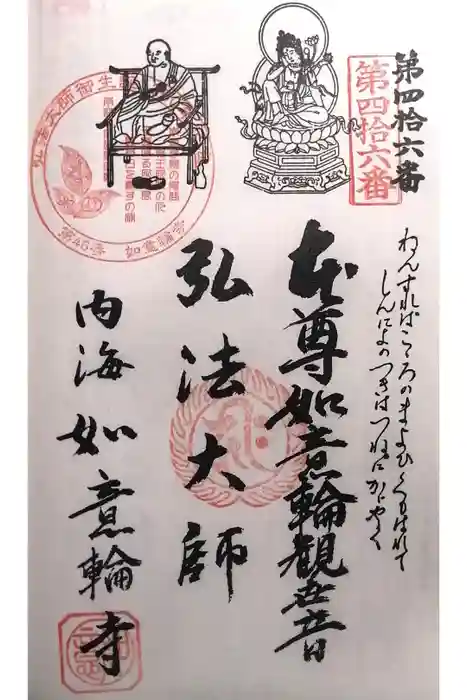 第四拾六番
第四拾六番
ねんすればこゝろのまよひくもはれて
しんによのつきはつねにかゞやく
本尊如意輪観世音
弘法大師
内海如意輪寺
弘法大師御生誕
第46番 如意輪寺